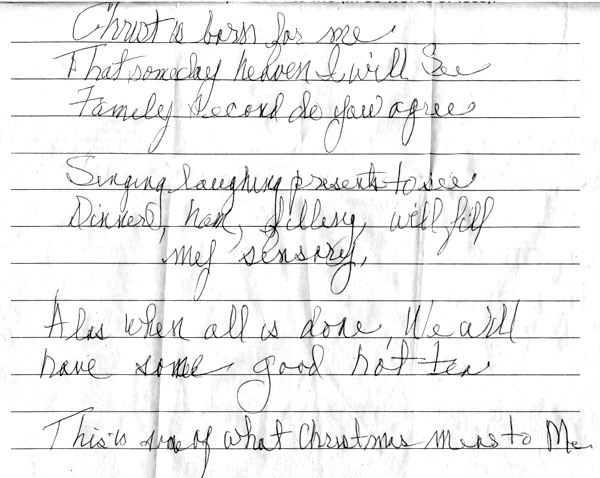 Christ is born for me
That someday heaven I will See
Family second do you agree
Singing, laughing presents to see
Dinner, ham, filling, will fill
my sensory,
Alas when all is done, We will
have some good hot tea
This is some of what Christmas means to Me